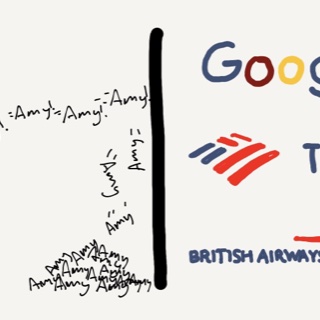 Amy! Amy! Amy!
Amy
Amy
Amy
Amy
Amy Amy
Amy Amy
Amy Amy Amy Amy
Goog
T
BRITISH AIRWAYS